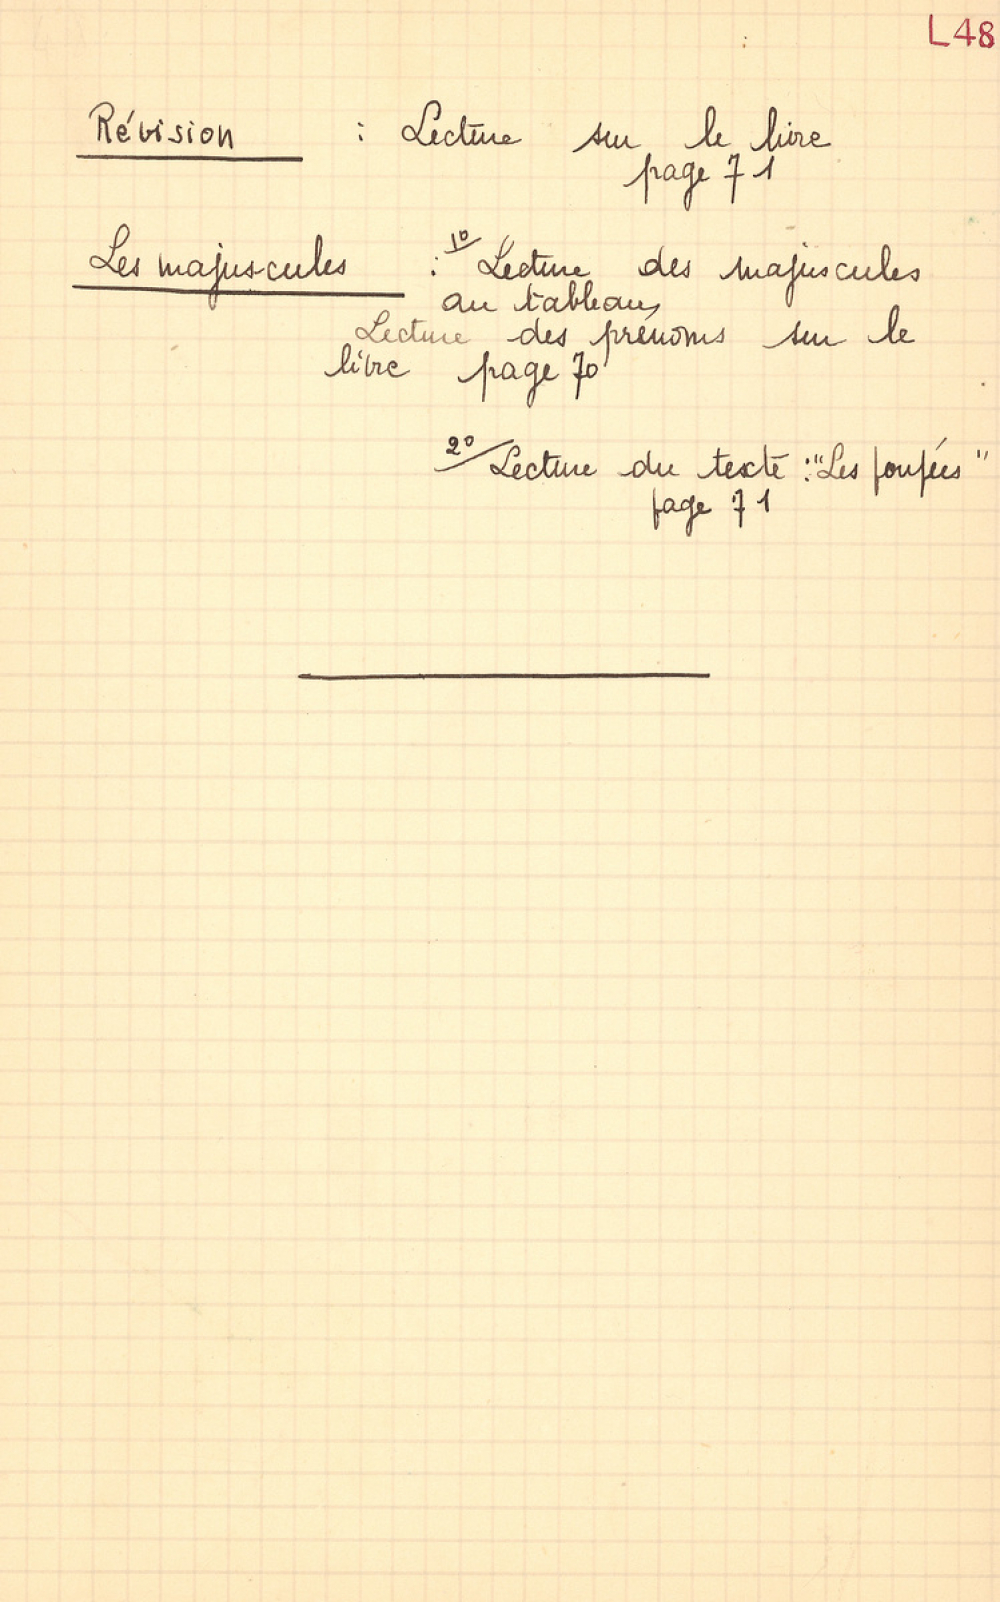 L48
Révision : Lecture sur le livre
page 71
Les majuscules : 1º/ Lecture des majuscules
au tableau,
Lecture des prénoms sur le
livre page 70
2º/ Lecture du texte : "Les poupées"
page 71